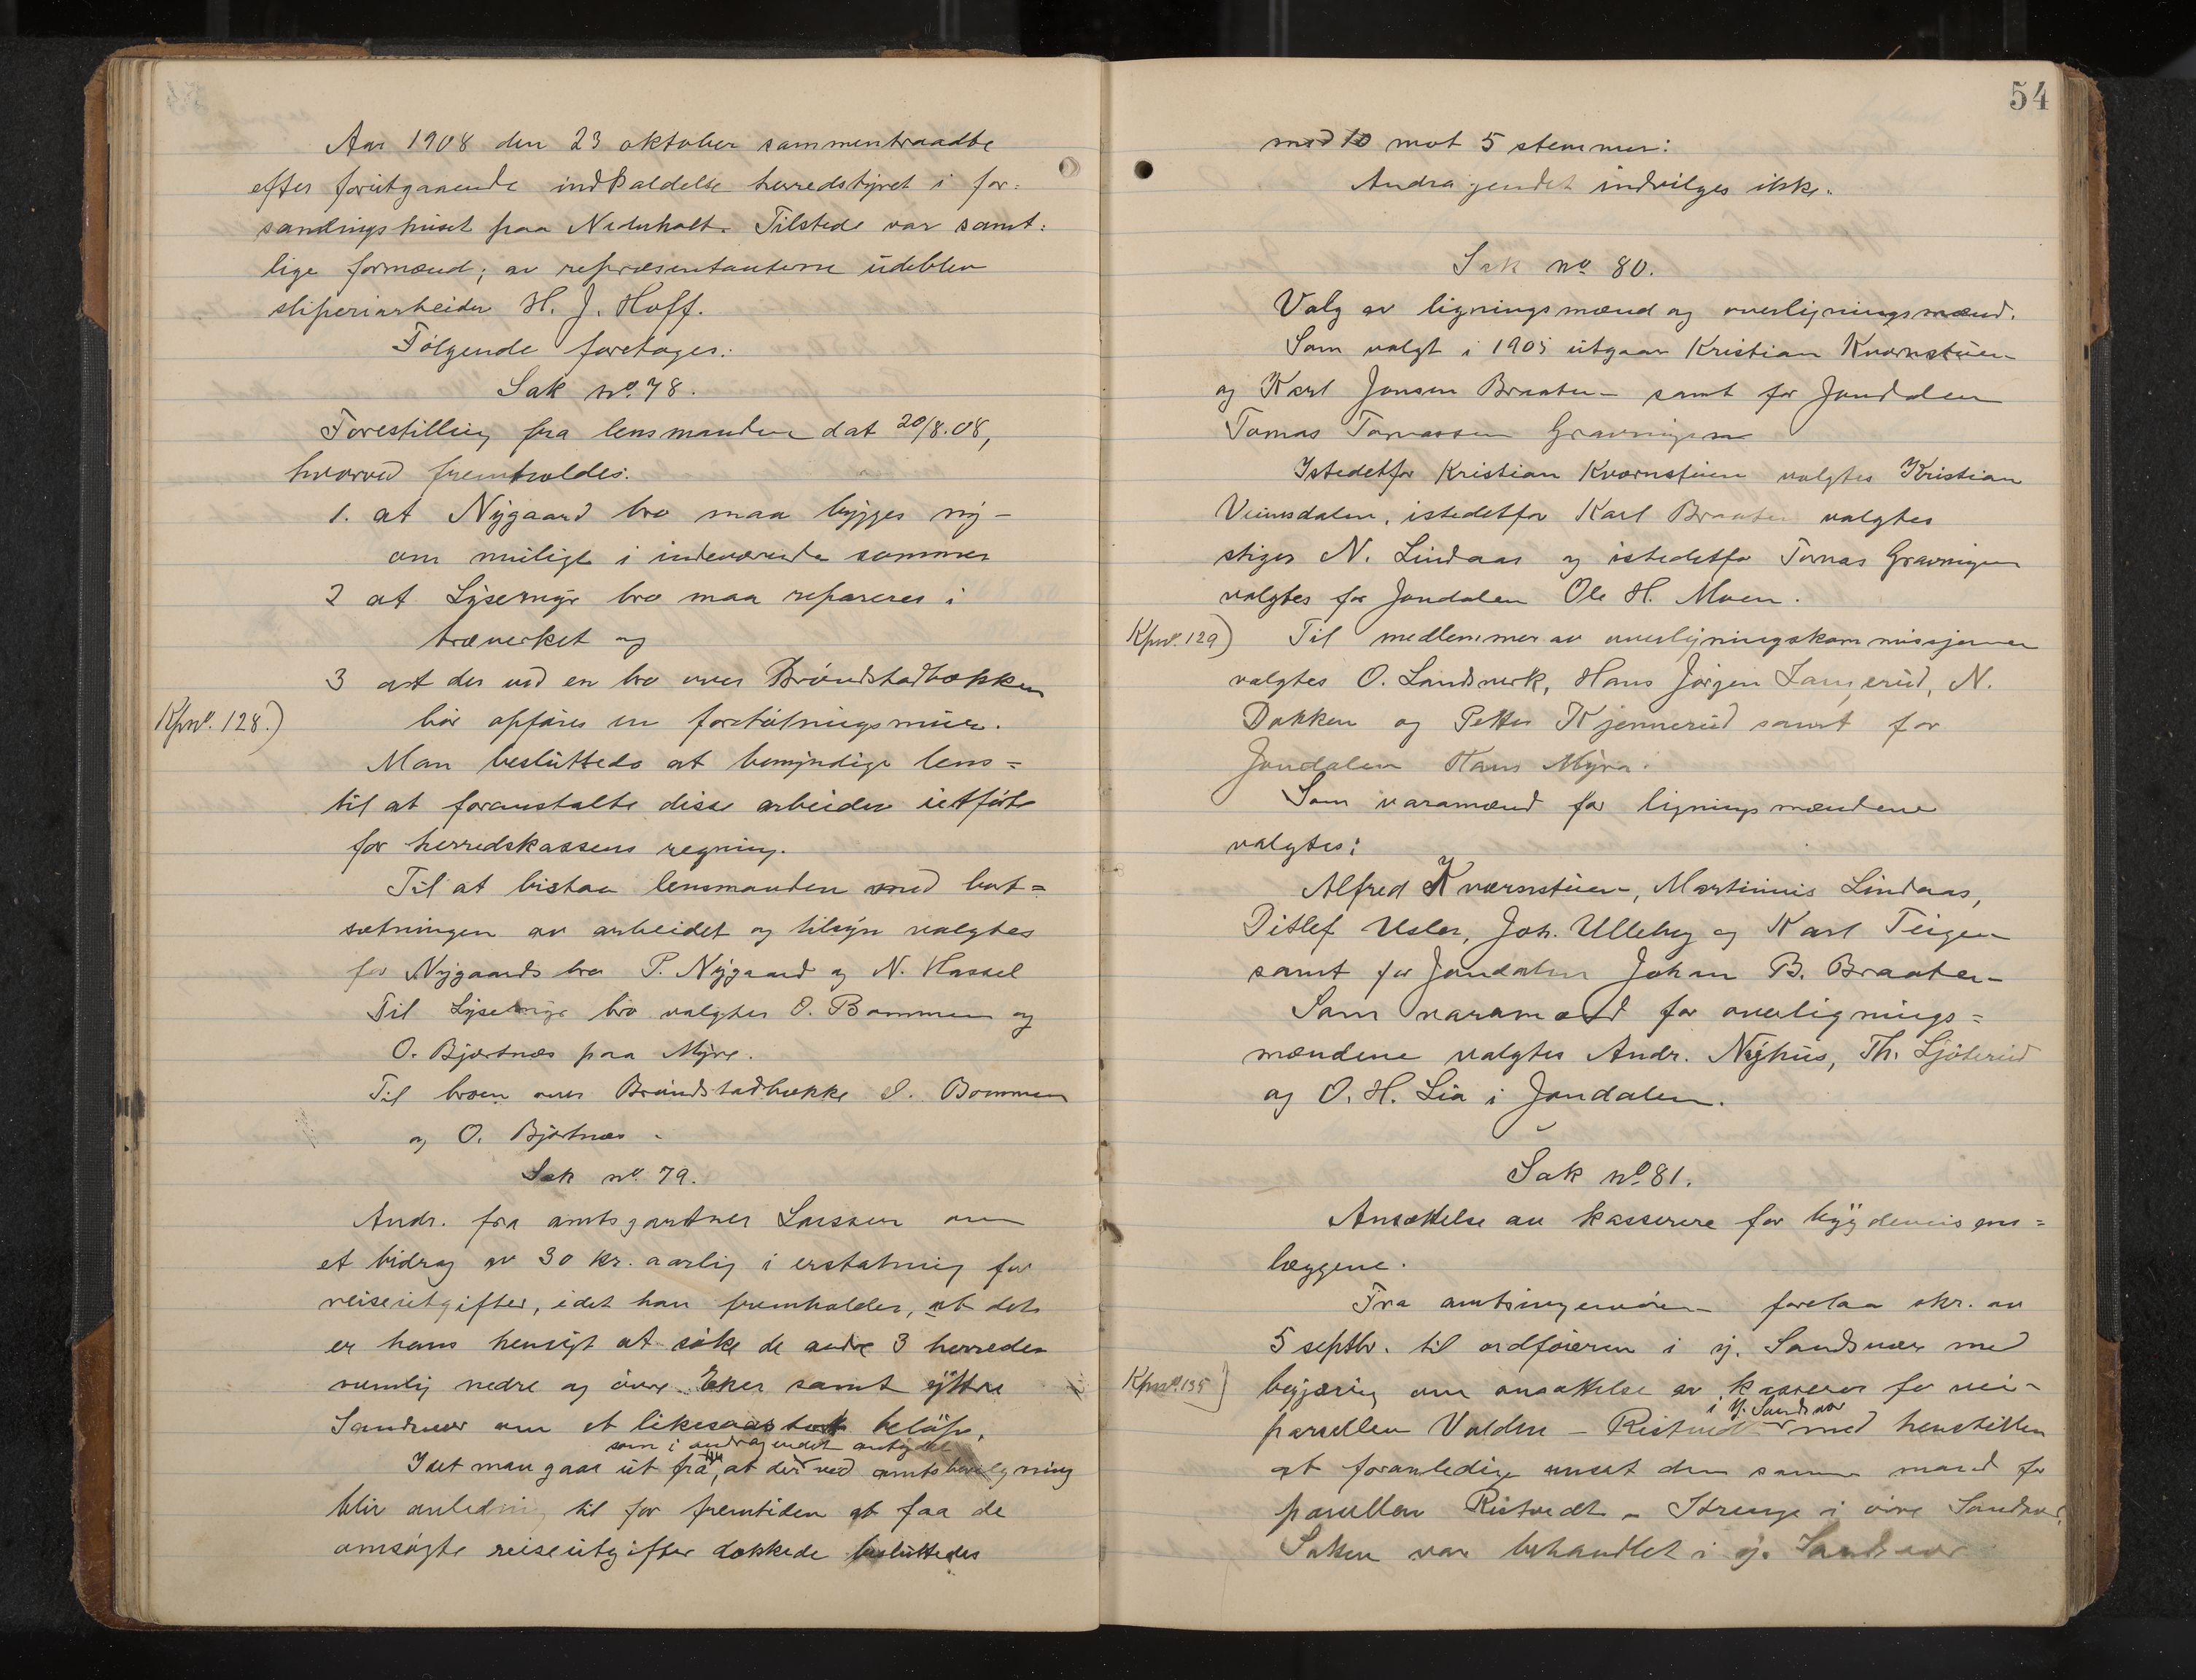 Aar 1908 den 23 oktober sammentraadte
efter forutgaaende indkaldelse herredstyret i for=
samlingshuset paa Nedreholt. Tilstede var samt=
lige formænd; av repræsentanterne udeblev
sliperiarbeider H. J. Hoff.
Følgende foretages:
Sak no. 78.
Forestilling fra lensmanden dat 20/8.08,
hvorved fremholdes:
1. at Nygaard bro maa bygges ny -
om muligt i indeværende sommer
2 at Lysemyr bro maa repareres i
træverket og
3 at der ved en bro over Brøndstadbækken
Kpnо. 128.)
bør opføres en forstøtningsmur.
Man besluttede at bemyndige lens=
til at foranstalte disse arbeider utført
for herredskassens regning.
Til at bistaa lensmanden med bort=
sætningen av arbeidet og tilsyn valgtes
for Nygaards bro P. Nygaard og N. Hassel
Til Lysemyr bro valgtes O. Bommen og
O. Bjørtnæs paa Myre.
Til broen over Brøndstadbække O. Bommen
og O. Bjørtnæs.
Sak no. 79.
Andr. fra amtsgartner Larssen om
et bidrag av 30 kr. aarlig i erstatning for
reiseutgifter, idet han fremholder, at det
er hans hensigt at søke de andre 3 herreder
nemlig nedre og øvre Eker samt yttre
Sandsvær om et likesaa stort beløp.
som i andragendet antydet
Idet man gaar ut fra, at der ved amtsbevilgning
blir anledning til for fremtiden at faa de
omsøgte reiseutgifter dækkede besluttedes
54
med 10 mot 5 stemmer:
Andragendet indvilges ikke.
Sak no 80.
Valg av ligningsmænd og overligningsmænd.
Som valgt i 1905 utgaar Kristian Kværnstuen
og Karl Jonsen Braaten samt for Jondalen
Tomas Tomassen Gravningen
Istedetfor Kristian Kværnstuen valgtes Kristian
Veumsdalen, istedetfor Karl Braaten valgtes
stiger N. Lindaas og istedetfor Tomas Gravningen
valgtes for Jondalen Ole H. Moen.
Kpno. 129)
Til medlemmer av overligningskommissjonen
valgtes O. Landsverk, Hans Jørgen Lamerud, N.
Dokken og Petter Kjennerud samt for
Jondalen Hans Myra.
Som varamænd for ligningsmændene
valgtes:
Alfred Kværnstuen, Martinius Lindaas,
Ditlef Usler, Joh. Ulleberg og Karl Teigen
samt for Jondalen Johan B. Braaten
Som varamænd for overlignings=
mændene valgtes Andr. Nyhus, Th. Ljøterud
og O. H. Lia i Jondalen.
Sak no. 81.
Ansættelse av kasserere for bygdeveisan=
læggene.
Fra amtsingeniøren forelaa skr. av
5 septbr. til ordføreren i y. Sandsvær med
Kpno. 135)
begjæring om ansættelse av kasserer for vei-
i y. Sandsvær
parsellen Valden - Ristvedt med henstillen
at foranledige ansat den samme mand for
parsellen Ristvedt - Strenge i øvre Sandsvær.
Saken var behandlet i y. Sandsvær